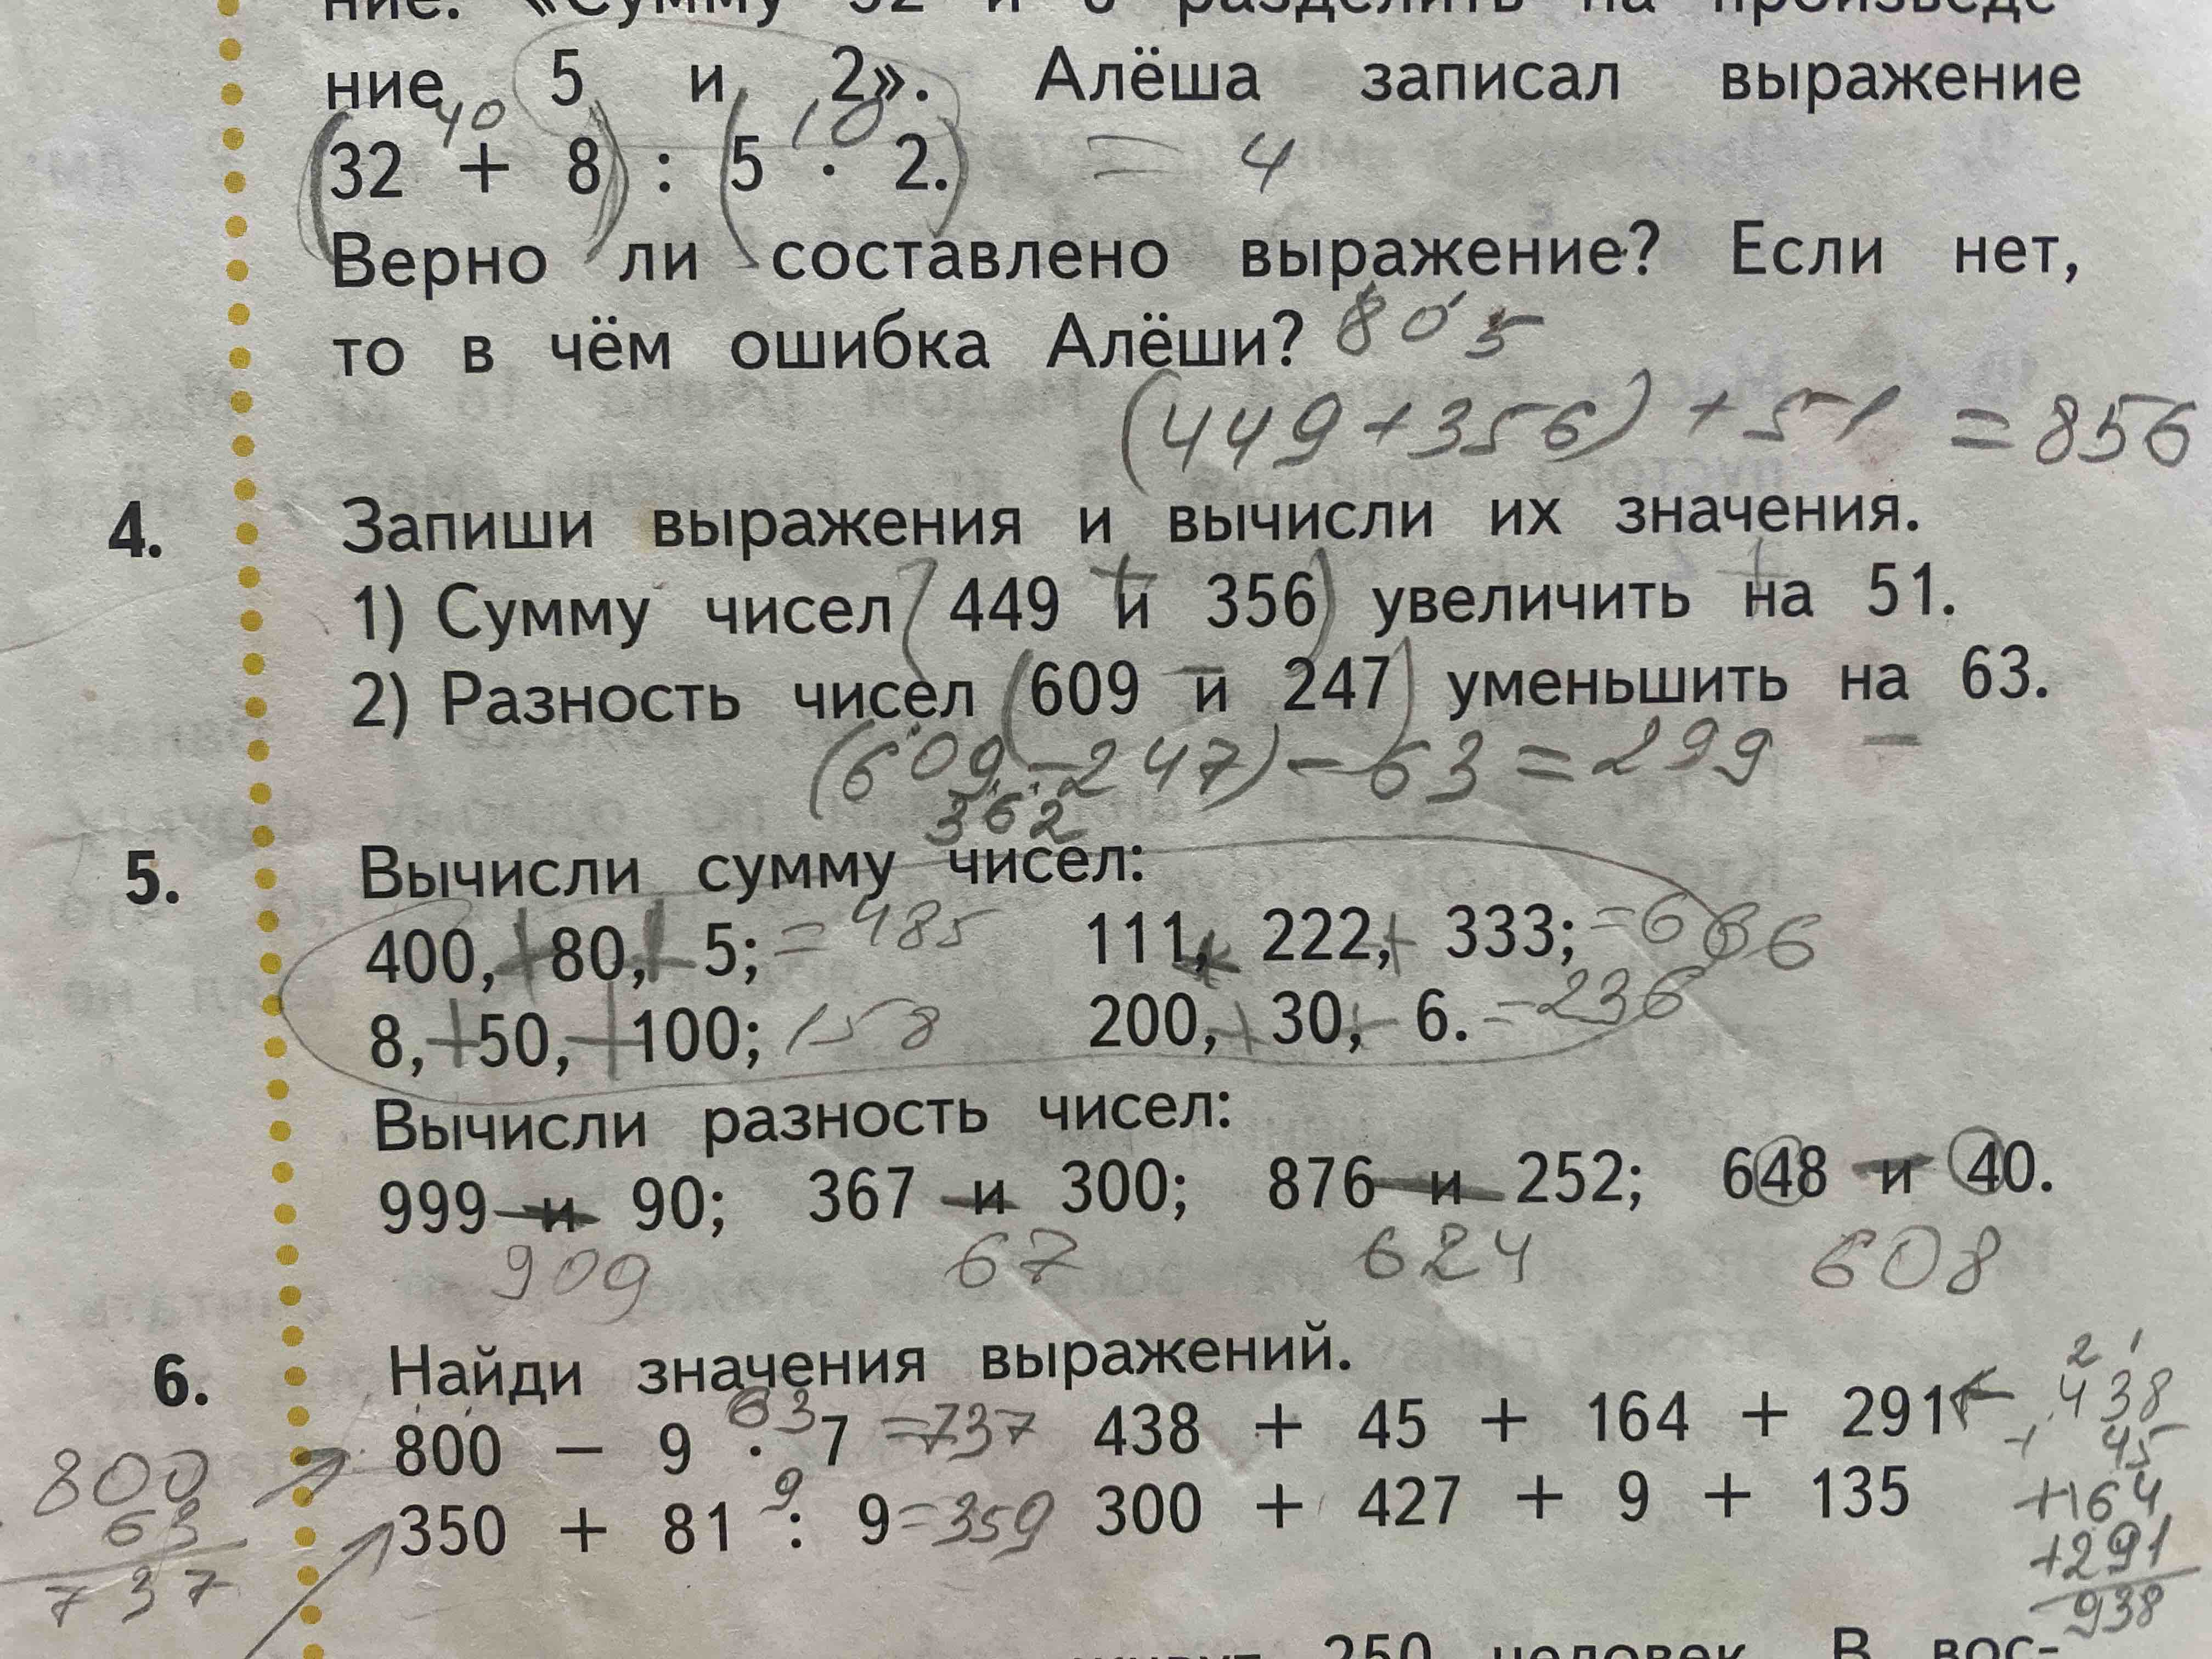 ние: «Сумму 32 и 8 разделить на произведе-
ние 5 и 2». Алёша записал выражение
40 10
(32 + 8) : (5 · 2.) = 4
Верно ли составлено выражение? Если нет,
то в чём ошибка Алёши? 805
(449+356) + 51 = 856
4. Запиши выражения и вычисли их значения.
1) Сумму чисел (449 и 356) увеличить на 51.
2) Разность чисел (609 и 247) уменьшить на 63.
(609-247)-63=299
362
5. Вычисли сумму чисел:
400, + 80, + 5; =485 111, + 222, + 333; =666
8, + 50, + 100; 158 200, + 30, + 6. =236
Вычисли разность чисел:
999 – и 90; 367 – и 300; 876 – и 252; 648 – и 40.
909 67 624 608
6. Найди значения выражений.
63
800 − 9 · 7 =737 438 + 45 + 164 + 291
9
350 + 81 : 9 =359 300 + 427 + 9 + 135
800
63
737
2 1
438
+ 45
+164
+291
938
250 человек. В вос-